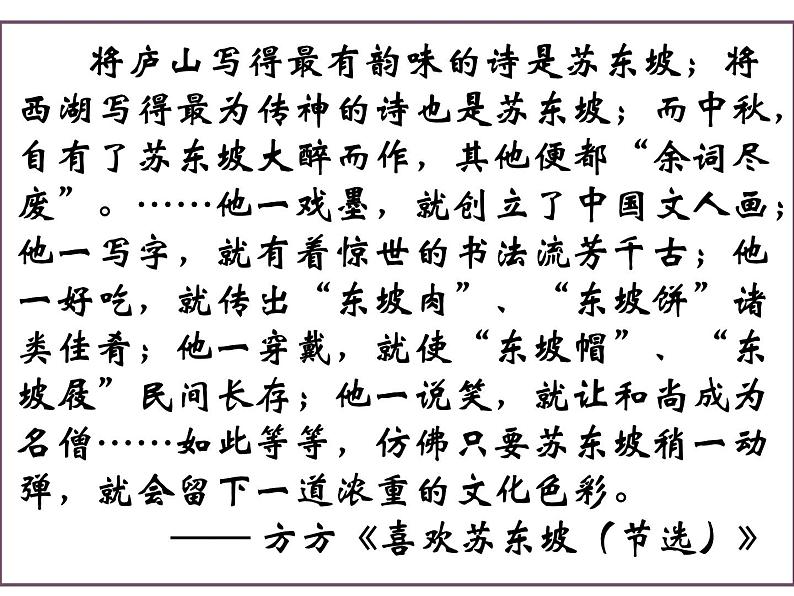 将庐山写得最有韵味的诗是苏东坡；将
西湖写得最为传神的诗也是苏东坡；而中秋，
自有了苏东坡大醉而作，其他便都“余词尽
废”。……他一戏墨，就创立了中国文人画；
他一写字，就有着惊世的书法流芳千古；他
一好吃，就传出“东坡肉”、“东坡饼”诸
类佳肴；他一穿戴，就使“东坡帽”、“东
坡屐”民间长存；他一说笑，就让和尚成为
名僧……如此等等，仿佛只要苏东坡稍一动
弹，就会留下一道浓重的文化色彩。
—— 方方《喜欢苏东坡（节选）》